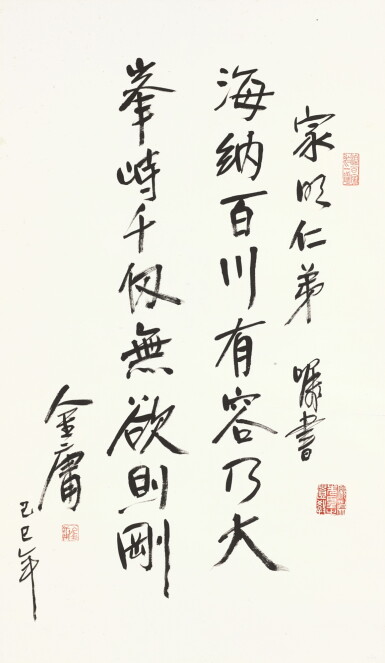 家明仁弟 囑書
海納百川有容乃大
峯峙千仭無欲則剛
金庸
己巳年